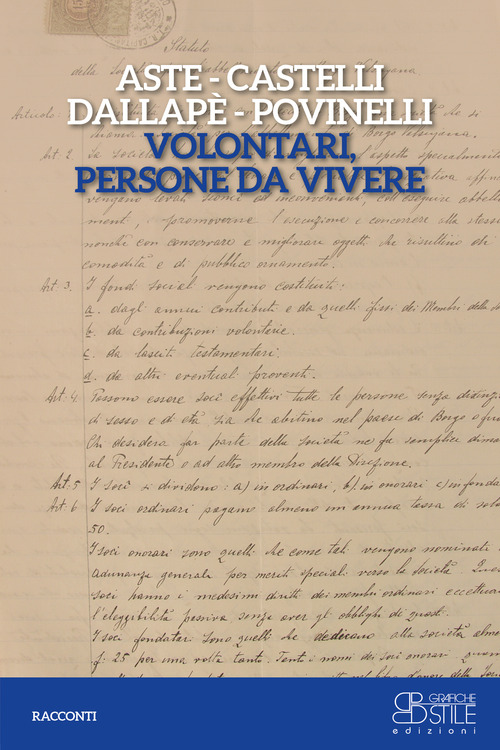 Statuto
ASTE - CASTELLI
DALLAPÈ - POVINELLI
VOLONTARI,
PERSONE DA VIVERE
Art. 2
di Borgo Valsugana.
l'aspetto specialmente
menti, promuoverne l'esecuzione e concorrere alla stessa
nonché con conservare e migliorare oggetti che riescano di
comodità e di pubblico ornamento.
Art. 3. I fondi sociali vengono costituiti:
a. dagli annui contributi e da quelli fissi dei Membri della
b. da contribuzioni volontarie.
c. da lasciti testamentari.
d. da altri eventuali proventi.
Art. 4. Possono essere soci effettivi tutte le persone senza
di sesso e di età sia che abitino nel paese di Borgo e
Chi desidera far parte della Società ne fa semplice
al Presidente o ad altro membro della Direzione.
Art. 5 I soci si dividono: a) in ordinari, b) in onorari c) in
Art. 6 I soci ordinari pagano almeno un annua tassa di
50.
I soci onorari sono quelli che come tali vengono nominati
adunanza generale per meriti speciali verso la Società.
soci hanno i medesimi diritti dei membri ordinari
l'eleggibilità passiva senza aver gl obblighi di questi.
I soci fondatori sono quelli che dedicano alla società
f: 25 per una volta tanto. Tanto i nomi dei soci onorari
RACCONTI
GRAFICHE
STILE
edizioni